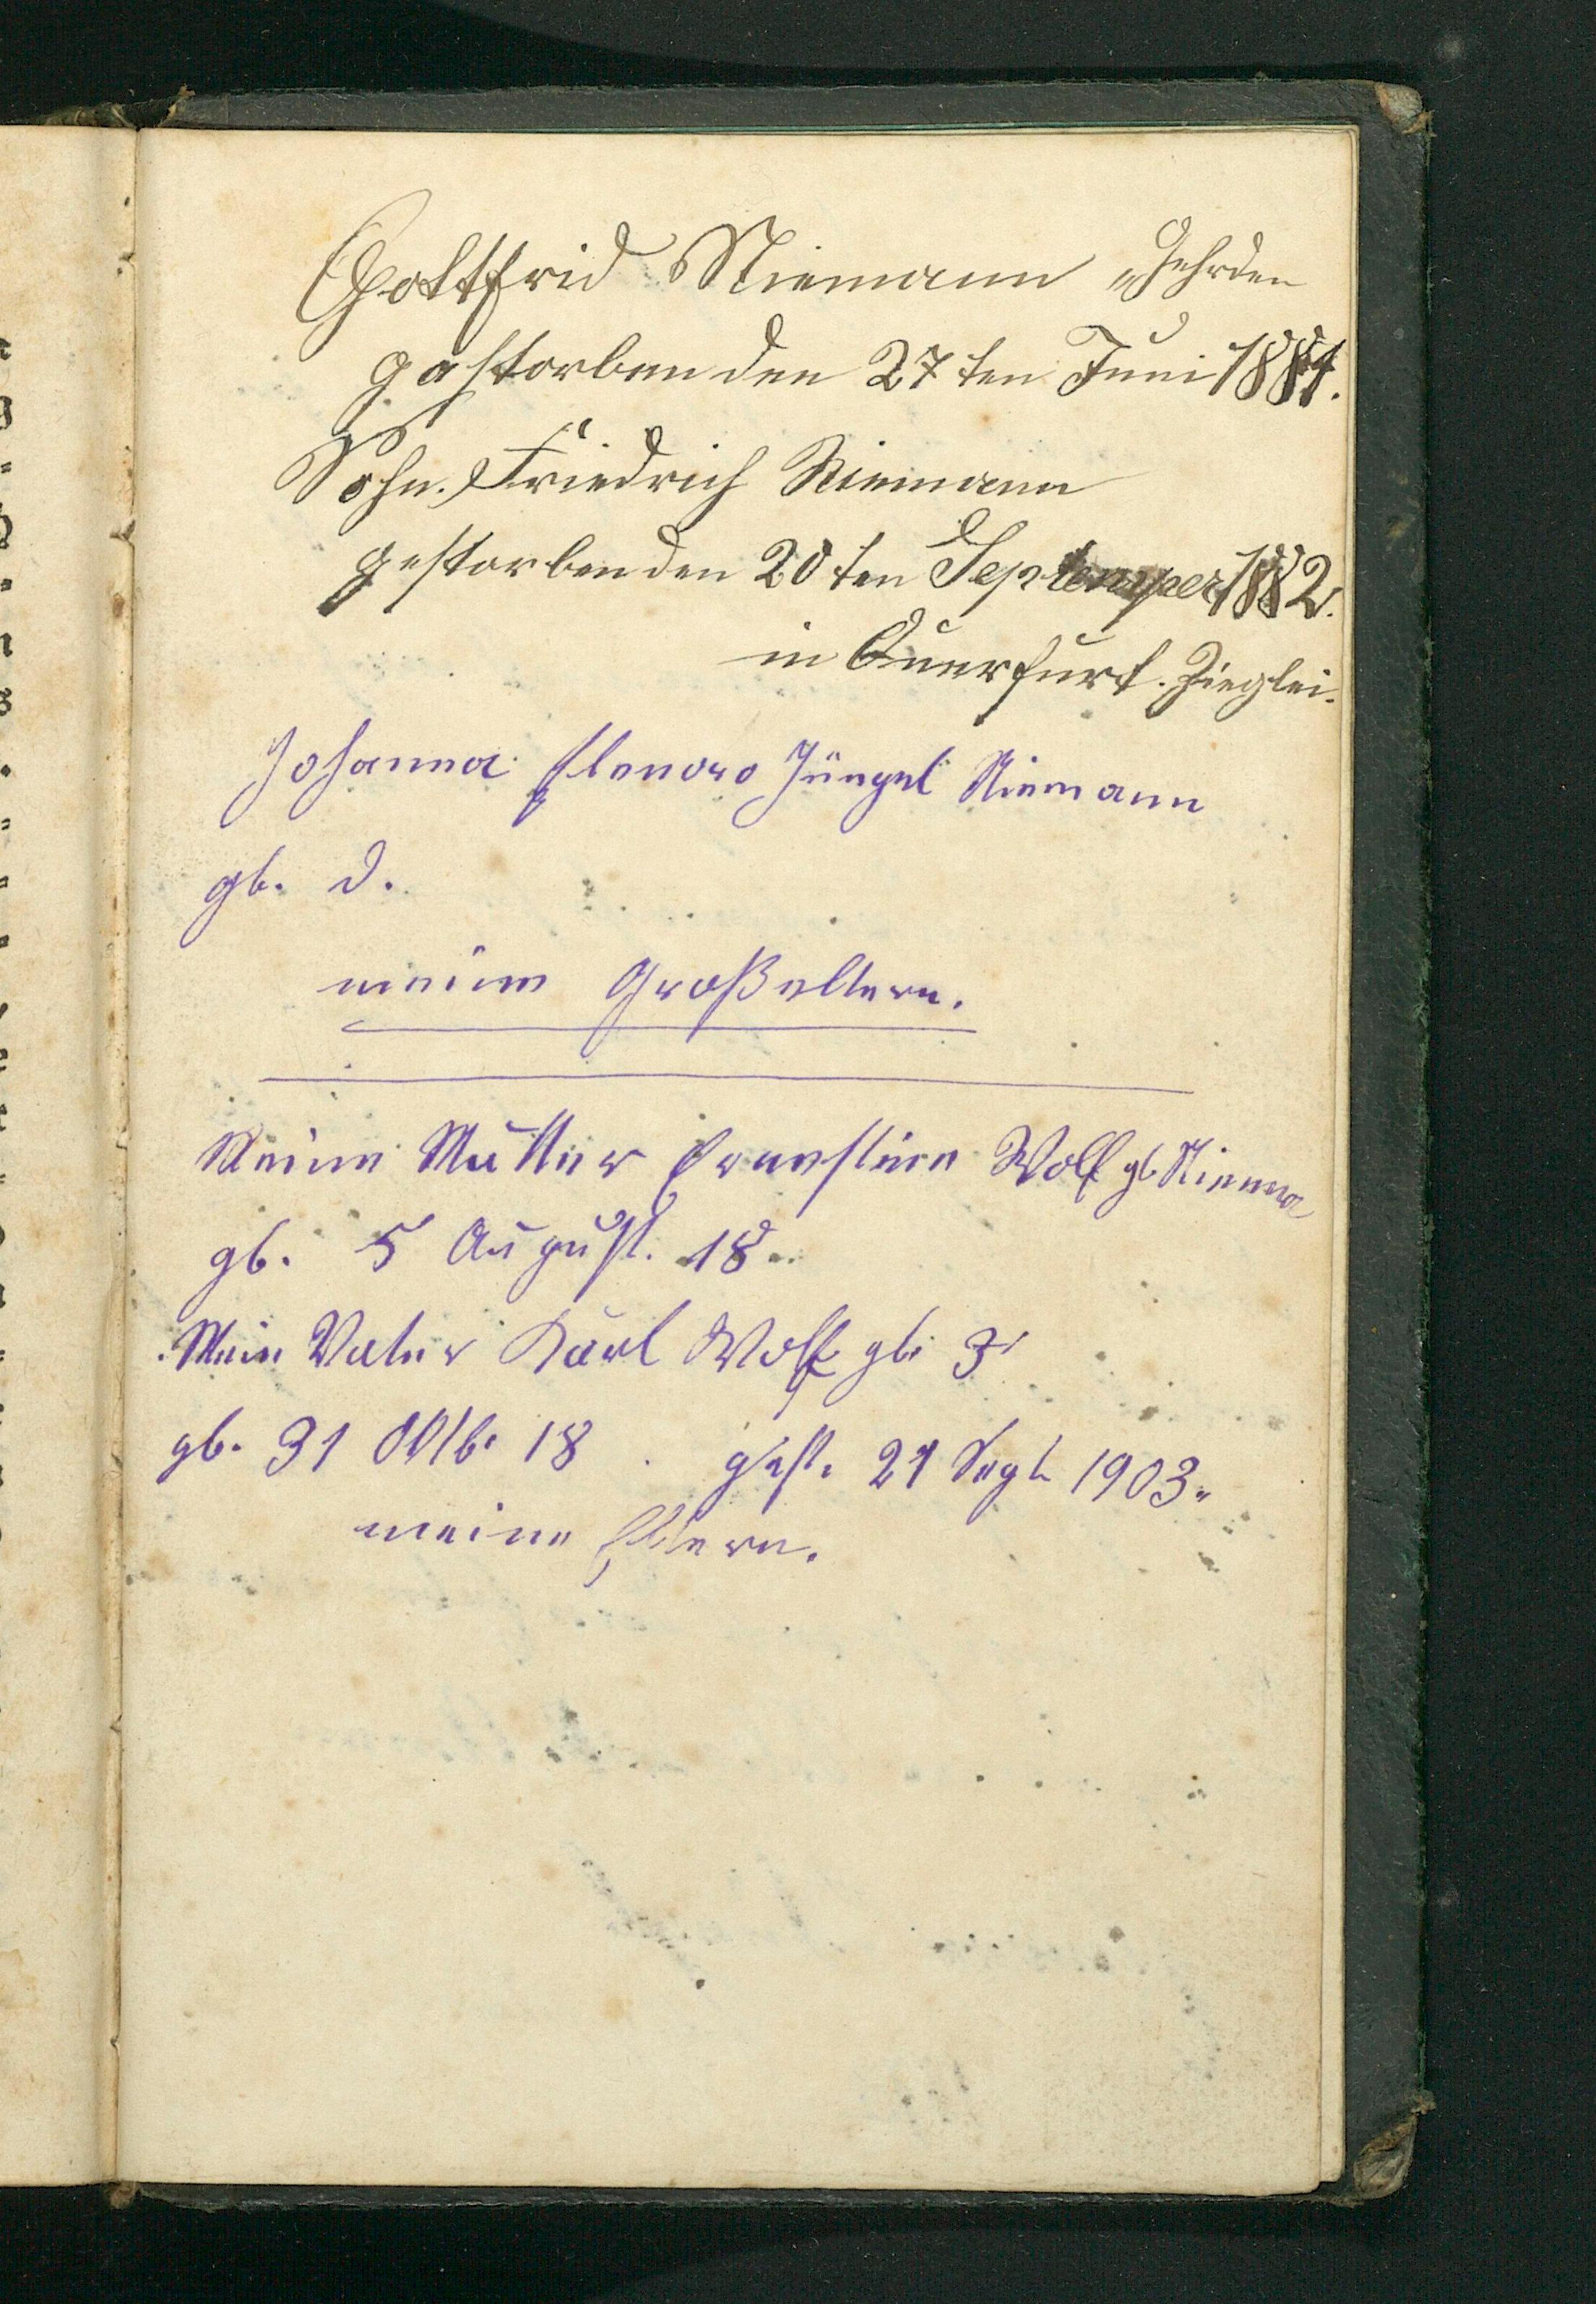 Gottfrid Niemann Gehrden
gestorben den 27ten Juni 1881.
Sohn. Friedrich Niemann
gestorben den 20ten Septemper 1882.
in Querfurt. Zieglei.
Johanna Elenore Jüngel Niemann
gb. d.
meine Großeltern.
Meine Mutter Ernestine Wolf gb Niema
gb. 5 August. 18
Mein Vater Karl Wolf gb. 3
gb. 31 Oktb. 18 . gest. 21 Sept 1903.
meine Eltern.